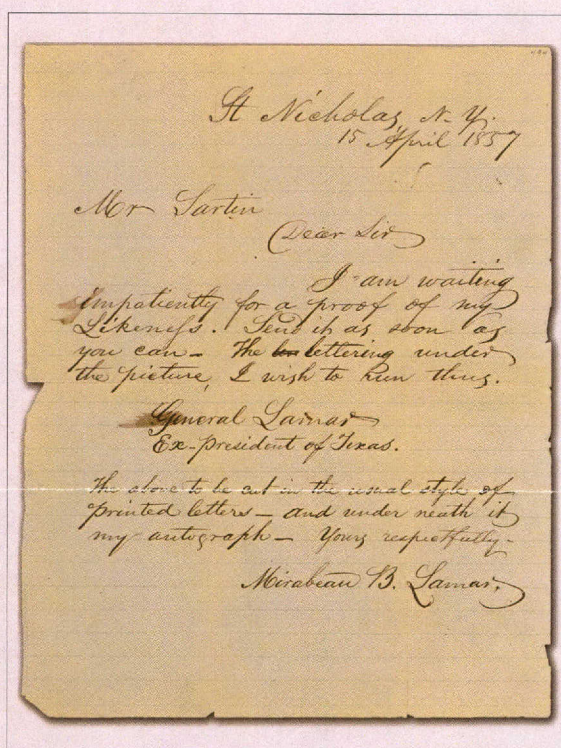 St Nicholas, N. Y.
15 April 1857
Mr Sartin
Dear Sir
I am waiting
impatiently for a proof of my
Likeness. Send it as soon as
you can – The lettering under
the picture, I wish to run thus.
General Lamar
Ex-President of Texas.
The above to be cut in the usual style of
printed letters – and under neath it
my autograph – Yours respectfully –
Mirabeau B. Lamar,